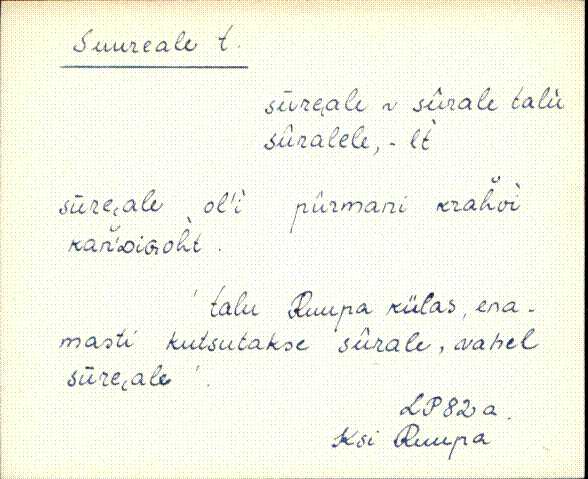 Suureale t.
sūreạale ~ sûrale talu̇̀
sûralele, -lt̀
sūreạale ol'ì pûrmani krahv̆ì
kan̆'ᴅiɢoh̀t.
' talu Ruupa külas, ena-
masti kutsutakse sûrale, vahel
sūreạale '.
LP82a.
Ksi Ruupa